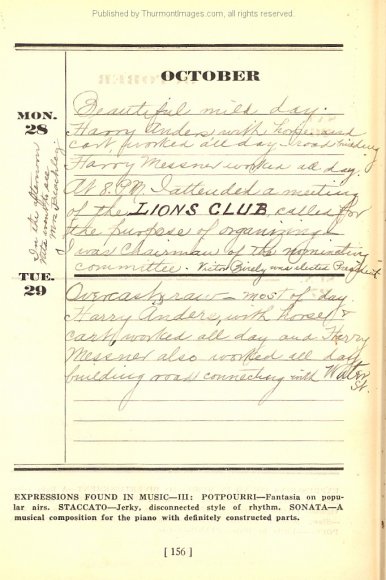 Published by ThurmontImages.com, all rights reserved.
OCTOBER
MON.
28
Beautiful mild day.
Harry Anders, with horse and
cart worked all day - road building
Harry Messner worked all day.
At 8 P.M. I attended a meeting
of the LIONS CLUB, called for
the purpose of organizing -
I was Chairman of the nominating
committee. Victor Birely was elected President
In the afternoon
Rita went to see
Mrs. Beachley.
TUE.
29
Overcast, raw - most of day
Harry Anders, with horse &
cart, worked all day and Harry
Messner also worked all day
building road connecting with Water
St.
EXPRESSIONS FOUND IN MUSIC—III: POTPOURRI—Fantasia on popu-
lar airs. STACCATO—Jerky, disconnected style of rhythm. SONATA—A
musical composition for the piano with definitely constructed parts.
[ 156 ]